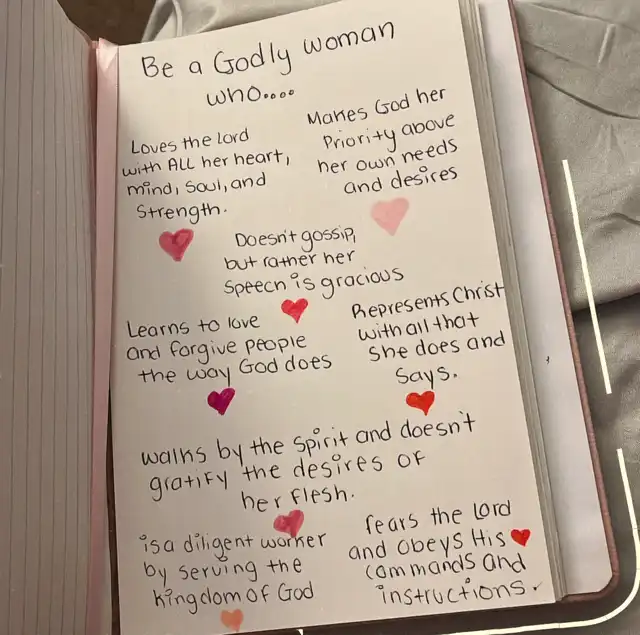 Be a Godly woman
who....
Loves the lord
with ALL her heart,
mind, soul, and
Strength.
Makes God her
Priority above
her own needs
and desires
Doesn't gossip,
but rather her
Speech is gracious
Learns to love
and forgive people
the way God does
Represents Christ
with all that
She does and
Says.
walks by the spirit and doesn't
gratify the desires of
her flesh.
is a diligent worker
by serving the
kingdom of God
fears the Lord
and obeys His
commands and
instructions.